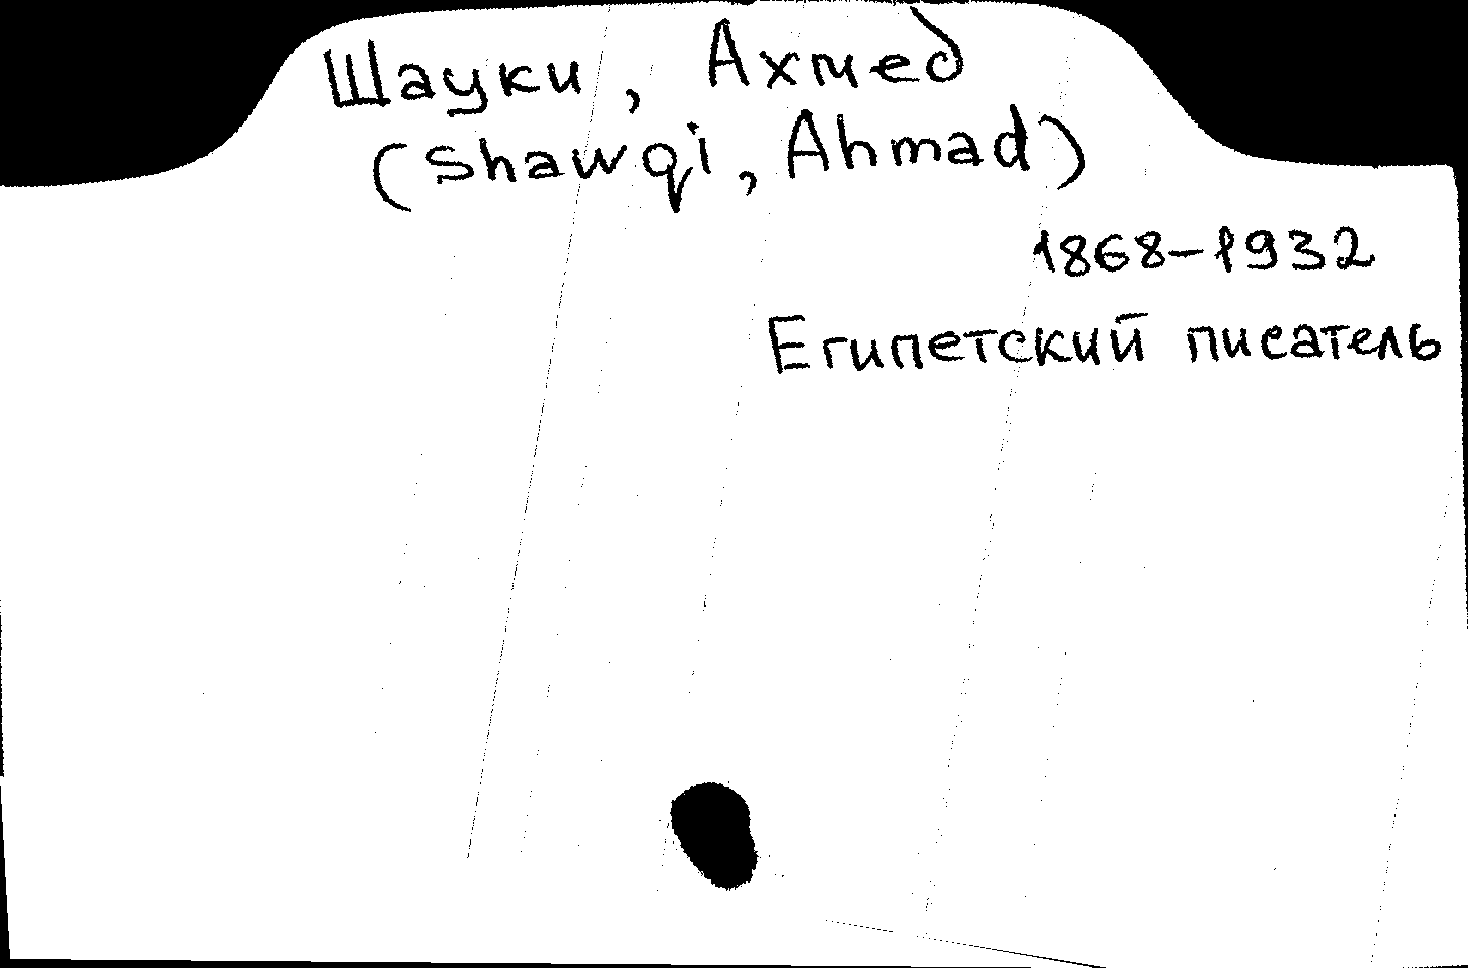 Шауки, Ахмед
(Shawqi, Ahmad)
1868-1932
Египетский писатель